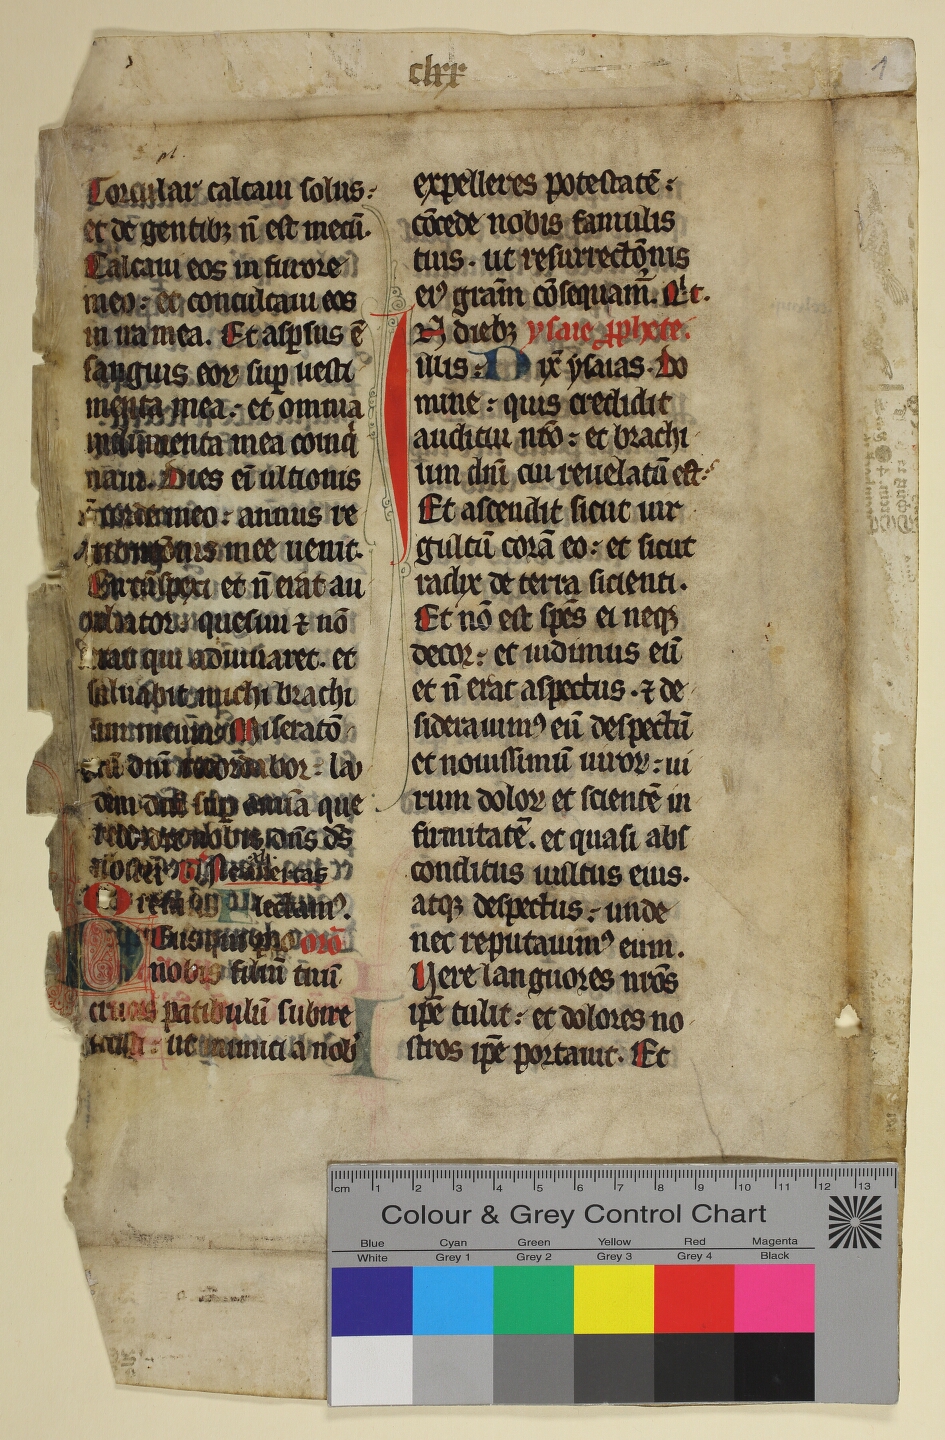 clxx
1
Torcular calcaui solus:
et de gentibꝫ n̄ est mecū.
Calcaui eos in furore
meo: et conculcaui eos
in ira mea. Et asp̄sus ē
sanguis eoꝝ sup uesti
menta mea: et omnia
indumenta mea coinq̇
naui. Dies ei̅ ultionis
in corde meo: annus re
demptōnis mee uenit.
Circūspexi et n̄ erat au
xiliator: quesiui ⁊ nō
fuit qui adiuuaret. et
saluauit michi brachi
um meum. Miseratō
nū dn̄i recordabor: la
dem dn̄i sup om̄ia que
reddidit nobis dn̄s ds̄
noster
flectam᷒.
Deus qui p̄ nobis orō
filiū tuū
crucis patibulū subire
uoluisti: ut inimici a nob̄
expelleres potestatē:
cōcede nobis famulis
tuis. ut resurrectōnis
eiꝰ grām cōsequam̄. Et.
In diebꝫ ysaie ꝓphete.
illis: Dix̄ ysaias. Do
mine: quis credidit
auditui nr̄o: et brachi
um dn̄i cui reuelatū est:
Et ascendit sicut uir
gultū corā eo: et sicut
radix de terra sicienti.
Et nō est spēs ei neqꝫ
decor: et uidimus eū
et n̄ erat aspectus. ⁊ de
siderauimꝰ eū despectū
et nouissimū uiroꝝ: ui
rum doloꝝ et scientē in
firmitatē. et quasi abs
conditus uultus eius.
atqꝫ despectus: unde
nec reputauimꝰ eum.
Vere languores nr̄os
ip̄e tulit: et dolores no
stros ip̄e portauit. Et
cm 1 2 3 4 5 6 7 8 9 10 11 12 13
Colour & Grey Control Chart
Blue Cyan Green Yellow Red Magenta
White Grey 1 Grey 2 Grey 3 Grey 4 Black